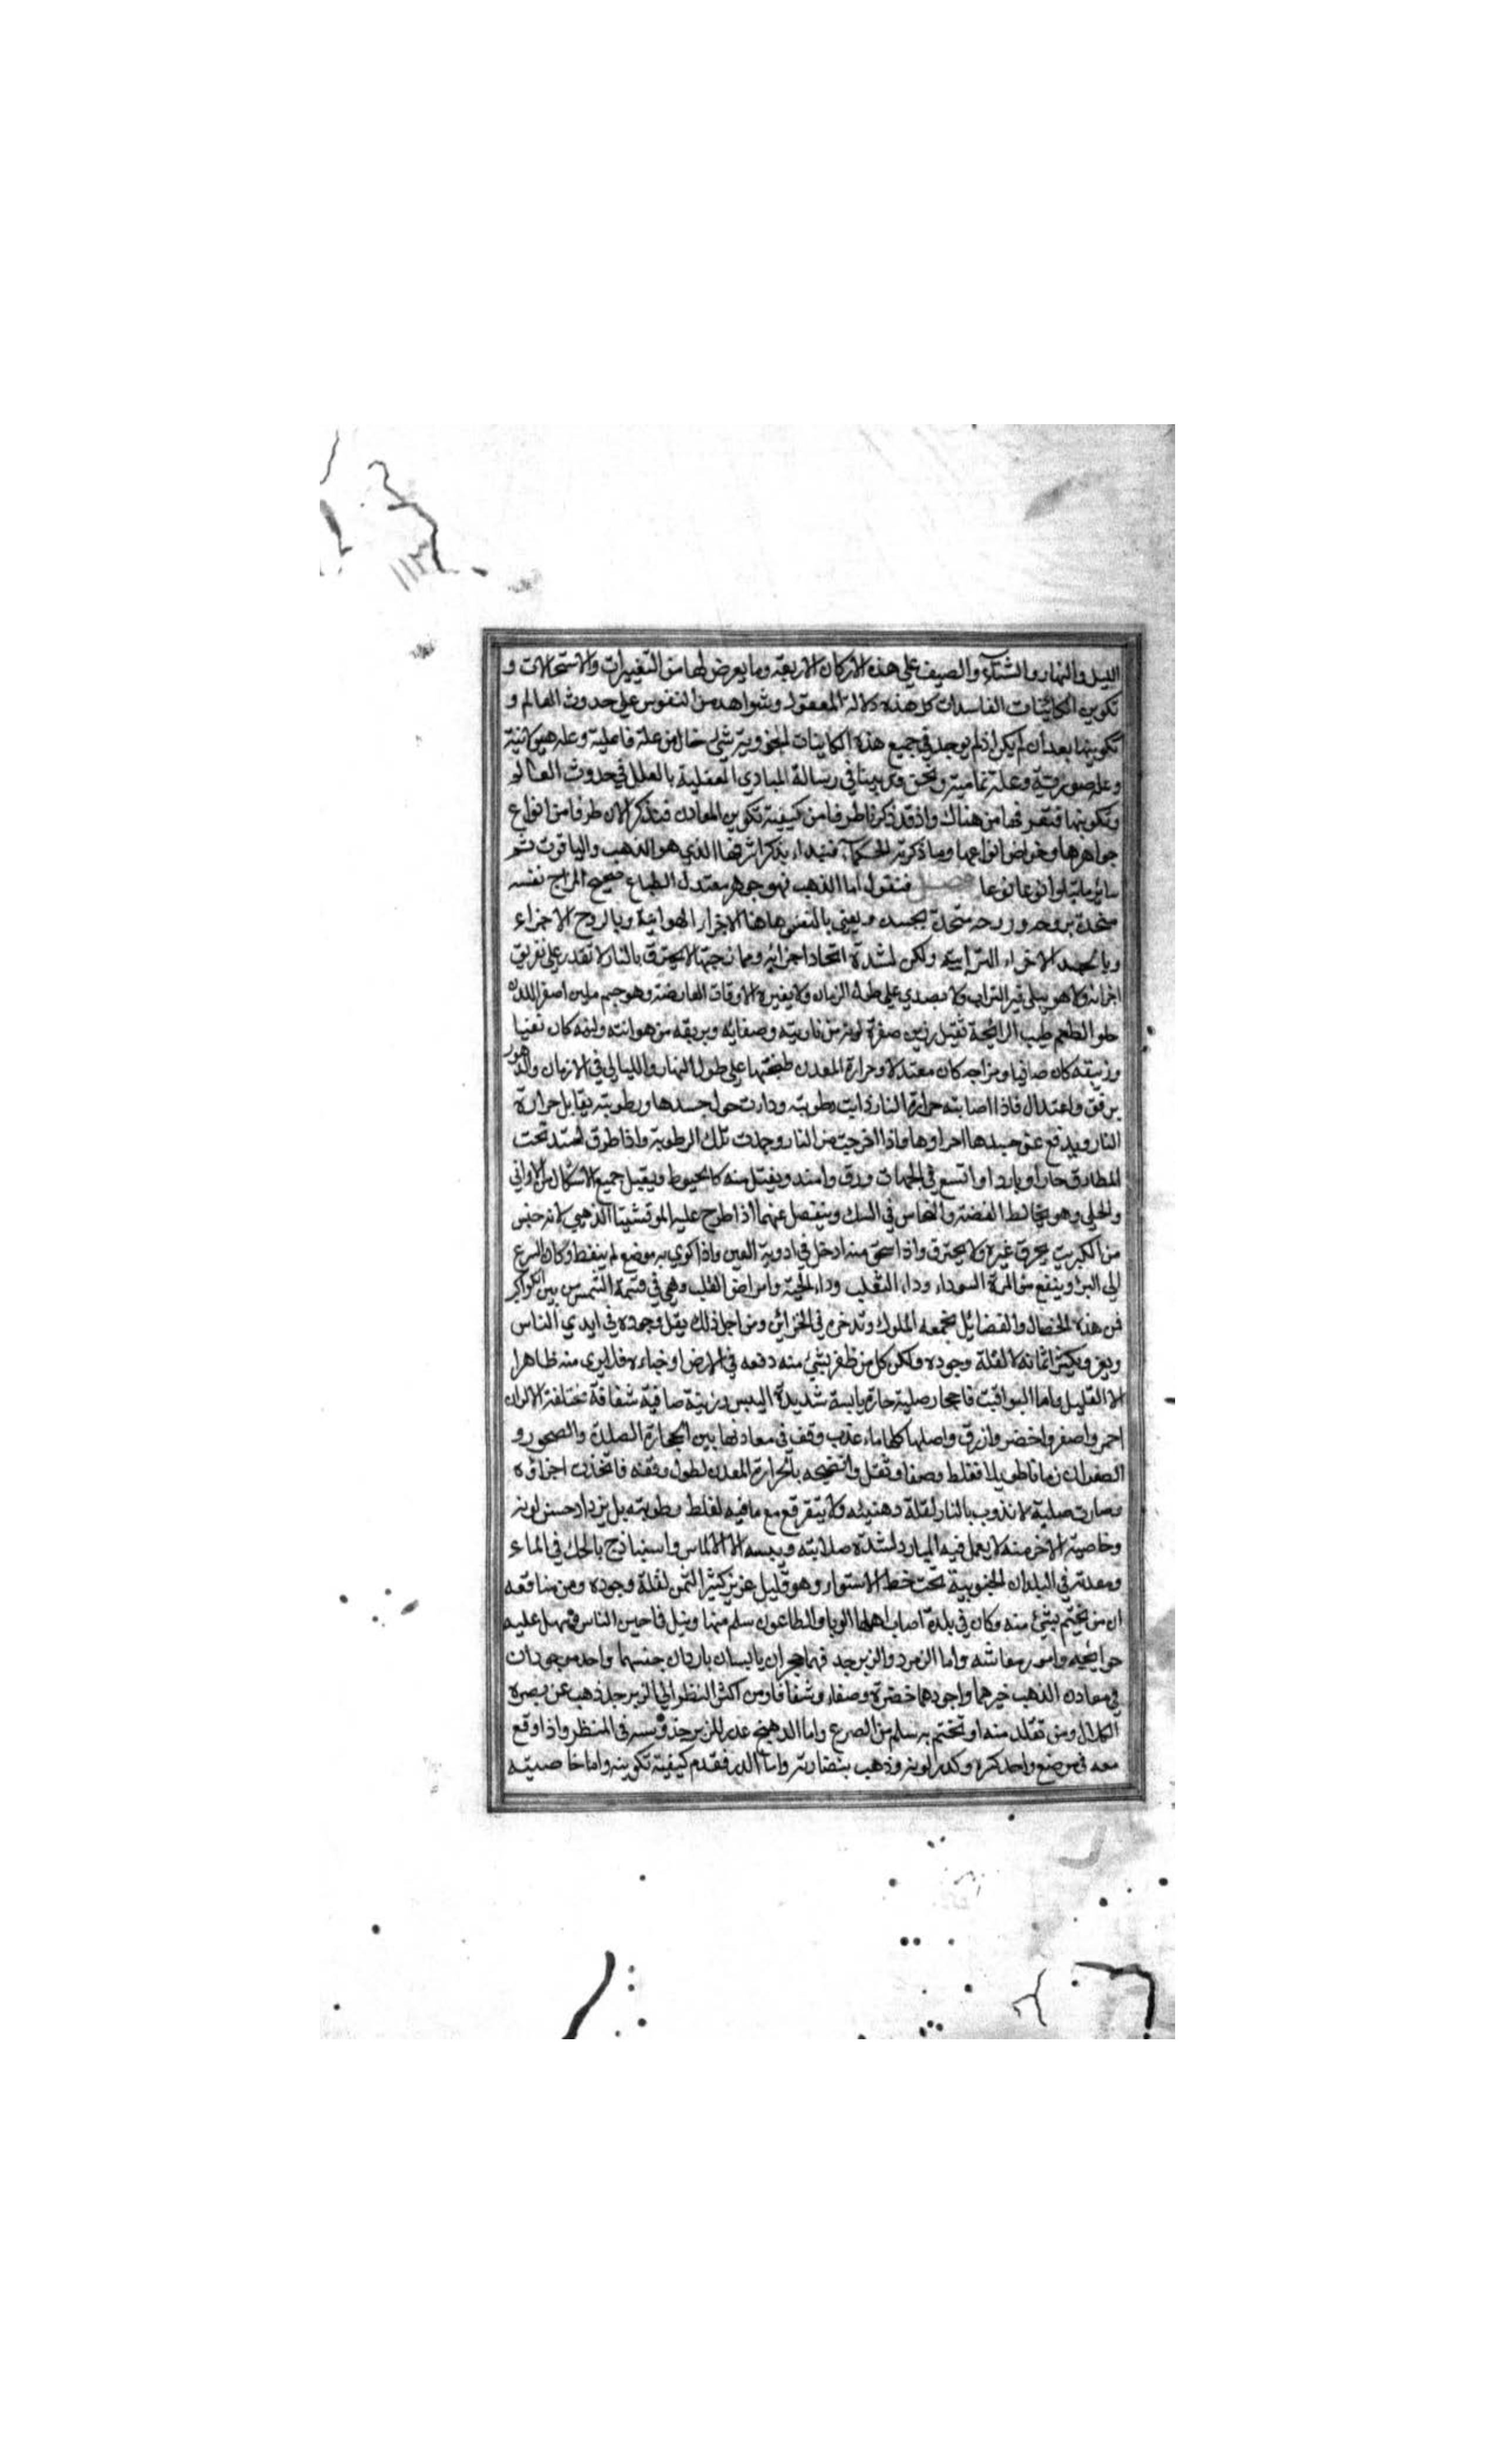 ١١٣
الليل والنهار والشتآء والصيف على هذه الاركان الاربعة وما يعرض لها من التغييرات والاستحالات و
تكوين الكائنات الفاسدات كل هذه دلالة المعقول وشواهد من النفوس على حدوث العالم و
تكوينها بعد أن لم يكن اذ لم يوجد في جميع هذه الكاينات شئ خال من علة فاعلية وعلة هيولانية
وعلة صورية وعلة تمامية ونحن قد بينا في رسالة المبادي العقلية بالعلل في حدوث العالم
وتكوينها فتعرفها من هناك واذ قد ذكرنا طرفا من كيفية تكوين المعادن فنذكر الان طرفا من انواع
جواهرها وخواص انواعها وما ذكرته الحكمآء فنبداء بذكر اشرفها الذي هو الذهب والياقوت ثم
ساير ما يتلوا نوعا نوعا فصل فنقول اما الذهب فهو جوهر معتدل الطباع صحيح المزاج نفسه
متحدة بروحه وروحه متحدة بجسده ويعني بالنفس هاهنا الاجزاء الهوائية وبالروح الاجزاء
وبالجسد الاجزاء الترابية ولكن لشدة اتحاد اجزائه وممازجتها لا يحترق بالنار لا تقدر على تفريق
اجزائه ولا هو يبلى في التراب ولا يصدي على طول الزمان ولا يغيره الاوقات العارضة وهو جسم ملين اصفر اللون
حلو الطعم طيب الرائحة ثقيل رزين صفرة لونه من ناريته وصفائه وبريقه من هوائته ولينه كان نقيا
وزيبقه كان صافيا ومزاجه كان معتدلا وحرارة المعدن طبختها على طول النهار والليالي في الازمان والدهور
برفق واعتدال فاذا اصابته حرارة النار ذابت رطوبته ودارت حول جسدها ورطوبته يقابل حرارة
النار ويدفع عن جسدها احراوها فاذا اخرجت من النار وجمدت تلك الرطوبة واذا طرق امتد تحت
المطارق حارا وباردا واتسع في الجهات ورق وامتد ويفتل منه كالخيوط ويقبل جميع الاشكال من الاواني
والحلي وهو يخالط الفضة والنحاس في السبك وينفصل عنهما اذا طرح عليه المرقشيتا الذهبي لانه جنس
من الكبريت يحرق غيره ولا يحترق واذا سحق منه ادخل في ادوية العين واذا كوي به موضع لم ينفط وكان اسرع
الى البرؤ وينفع من المرة السوداء وداء الثعلب وداء الحية وامراض القلب وهي في قسمة الشمس بين الكواكب
فمن هذه الخصال والفضايل تجمعه الملوك وتدخره في الخزائن ومن اجل ذلك يقل وجوده في ايدي الناس
ويعز ويكثر اثمانه لقلة وجوده ولكن كل من ظفر بشئ منه دفعه في الارض او خباءه فلا يرى منه ظاهرا
الا القليل واما اليواقيت فاحجار صلبة حارة يابسة شديدة اليبس رزينة صافية شفافة مختلفة الالوان
احمر واصفر واخضر وازرق واصلها كلها ماء عذب وقف في معادنها بين الحجارة الصلدة والصخور و
الصفوان زمانا طويلا فغلظ وصفا وثقل وانضجته الحرارة المعدن لطول وقفه فاتخذت اجزاؤه
وصارت صلبة لا تذوب بالنار لقلة دهنيته ولا يتفرقع مع ما فيه لغلظ رطوبته بل يزداد حسن لونه
وخاصية الاخر منه لا يعمل فيه المبارد لشدة صلابته ويبسه الا الالماس واسنباذج بالحك في الماء
ومعدنه في البلدان الجنوبية تحت خط الاستوار وهو قليل عزيز كثير الثمن لقلة وجوده ومن منافعه
ان من تختم بشئ منه وكان في بلدة اصاب اهلها الوبا والطاعون سلم منها ونبل في اعين الناس وسهل عليه
حوائجه وامور معاشه واما الزمرد والزبرجد فهما حجران يابسان باردان جنسهما واحد موجودان
في معادن الذهب خيرهما واجودهما خضرة وصفاء وشفافا ومن اكثر النظر الى الزبرجد ذهب عن بصره
الكلال ومن تقلد منه او تختم به سلم من الصرع واما الدهنج عدو للزبرجد ويسر في المنظر واذا وقع
معه في موضع واحد كره وكدر لونه وذهب بنضارته واما الدر فقدم كيفية تكوينه واما خاصيته